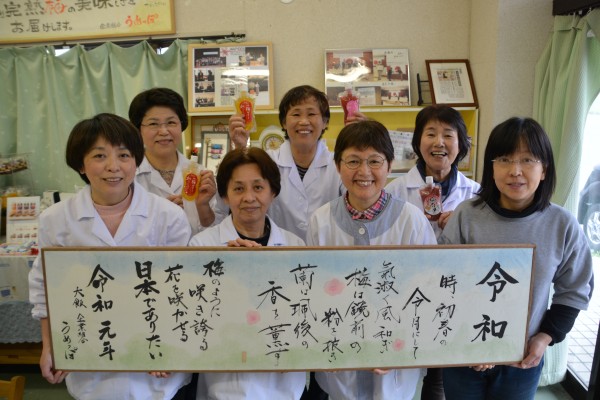 完熟梅の美味しさを
お届けします。
令和
時、初春の
令月にして
氣淑く風和ぎ
梅は鏡前の
粉を披き
蘭は珮後の
香を薫す
梅のように
咲き誇る
花を咲かせる
日本でありたい
令和元年
企業組合